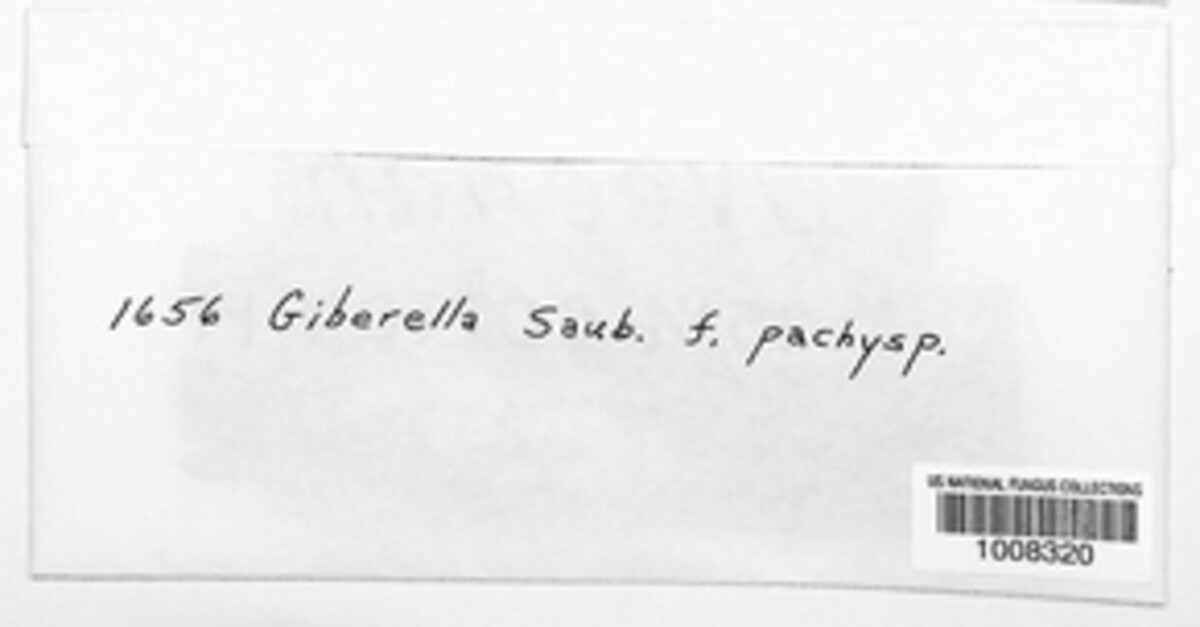 1656 Giberella Saub. f. pachysp.
US NATIONAL FUNGUS COLLECTIONS
1008320